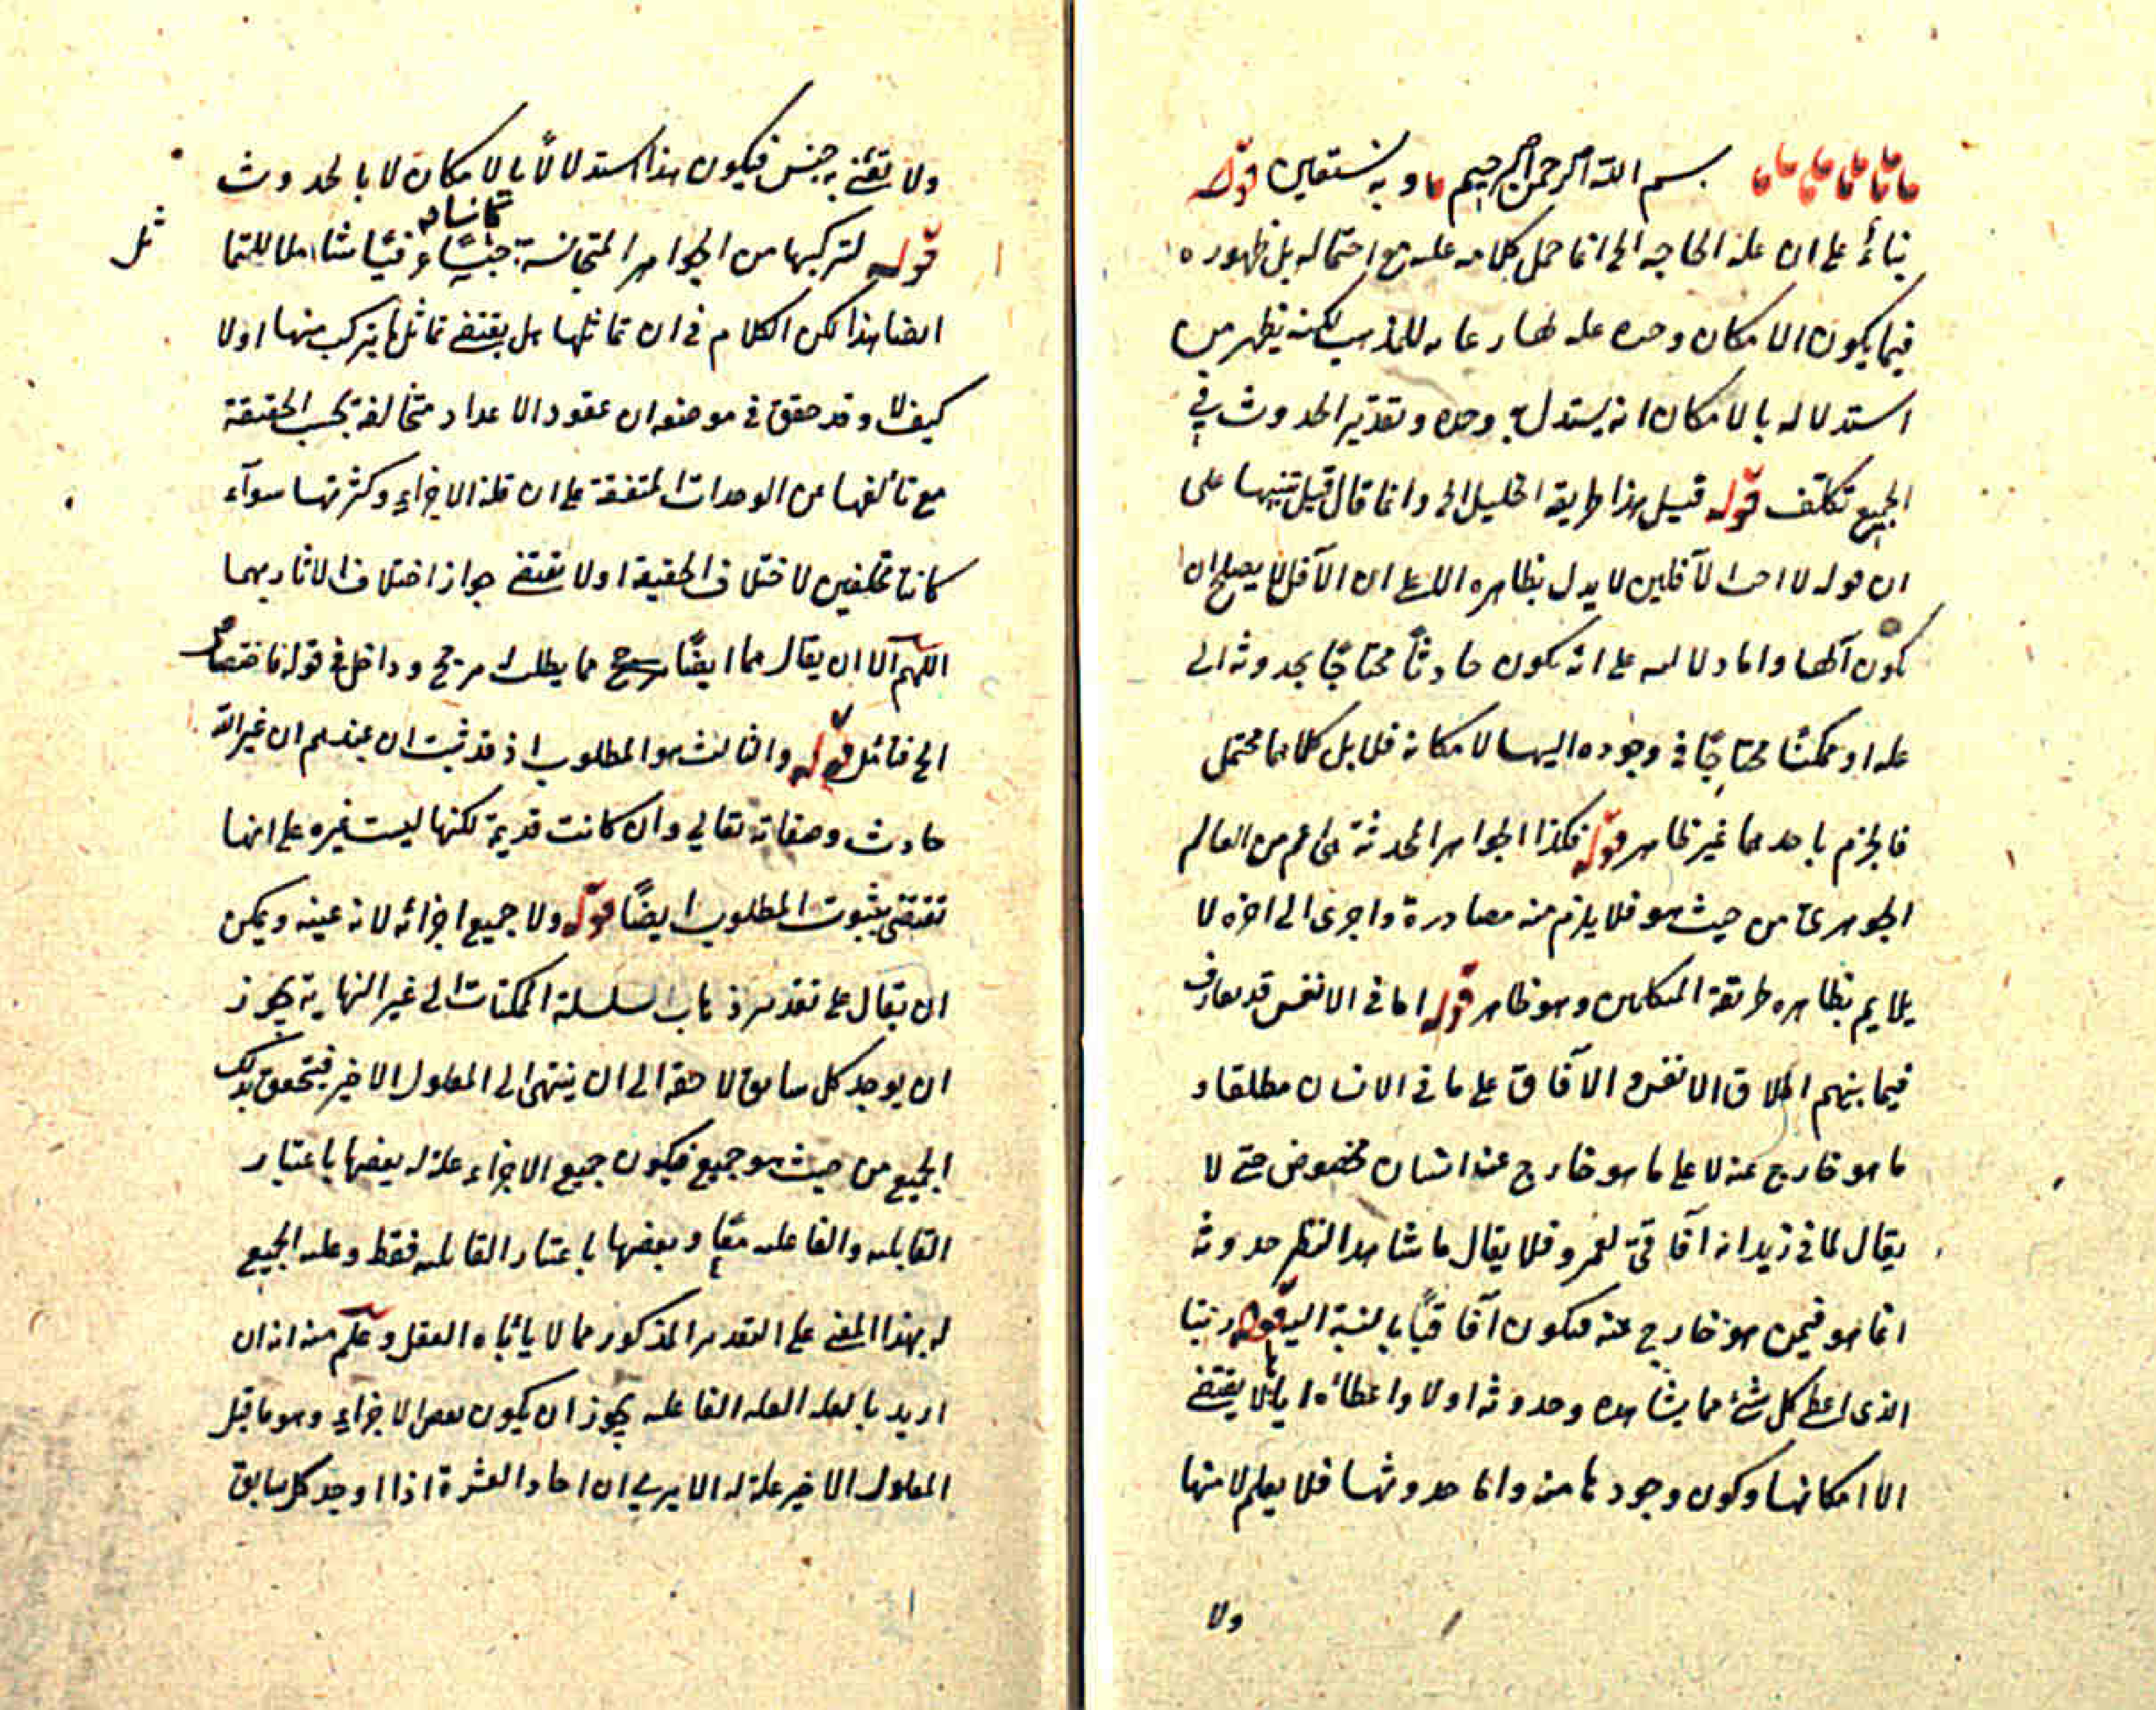 بسم الله الرحمن الرحيم وبه نستعين قوله
بناءً على ان علة الحاجة الخ انما حمل كلامه عليه مع احتماله بل ظهوره
فيما يكون الامكان وحده علة لها رعاية للمذهب لكنه يظهر من
استدلاله بالامكان انه يستدل به وحده وتقدير الحدوث في
الجميع تكلف قوله قيل هذا طريقة الخليل الخ وانما قال قيل تنبيها على
ان قوله لا احب الآفلين لا يدل بظاهره الا على ان الآفل لا يصلح ان
يكون آلها واما دلالته على انه يكون حادثاً محتاجًا بحدوثه الى
علة او ممكنًا محتاجًا في وجوده اليها لامكانه فلا بل كلاهما محتمل
فالجزم باحدهما غير ظاهر قوله فكذا الجواهر المحدثة اعم من العالم
الجوهرى من حيث هو فلا يلزم منه مصادرة واجرى الى اخره لا
يلايم بظاهره طريقة المتكلمين وهو ظاهر قوله اما في الانفس قد تعارف
فيما بينهم اطلاق الانفس والآفاق على ما في الانسان مطلقا و
ما هو خارج عنه لا على ما هو خارج عنه انسان مخصوص حتى لا
يقال لما في زيد انه آفاقيّ لعمرو فلا يقال ما شاهد النظر حدوثه
انما هو فيمن هو خارج عنه فيكون آفاقيًا بالنسبة اليه قوله ربنا
الذى اعطى كل شئ مما يشاهده وحدوثه اولا واعطاؤه اياها لا يقتضى
الا امكانها وكون وجودها منه واما حدوثها فلا يعلم لا منها
ولا
ولا يقتضيه جنس فيكون هذا استدلالاً بالامكان لا بالحدوث
قوله لتركبها من الجواهر المتجانسة شاملا للتما
ثل
ايضا هذا لكن الكلام في ان تماثلها هل يقتضى تماثل ما يتركب منها اولا
كيف لا وقد حقق في موضعه ان عقود الاعداد متخالفة بحسب الحقيقة
مع تألفها من الوحدات المتفقة على ان قلة الاجزاء وكثرتها سوآء
كانتا مختلفين لاختلاف الحقيقة اولا يقتضى جواز اختلاف الاثار بهما
اللهم الا ان يقال هما ايضًا مما يطلب مرجح وداخل في قوله فاختصاص
الخ فتأمل قوله والثالث هو المطلوب اذ قد ثبت ان عندهم ان غير الله
حادث وصفاته تعالي وان كانت قديمة لكنها ليست غيره على انها
تقتضى بثبوت المطلوب ايضًا قوله ولا جميع اجزائه لانه عينه ويمكن
ان يقال على تقدير ذهاب السلسلة الممكنات الى غير النهاية يجوز
ان يوجد كل سابق لاحقه الى ان ينتهى الى المعلول الاخير فيتحقق بذلك
الجميع من حيث هو جميع فيكون جميع الاجزاء علة له بعضها باعتبار
القابلية والفاعلية معًا وبعضها باعتبار القابلية فقط وعلية الجميع
له بهذا المعنى على التقدير المذكور مما لا يأباه العقل وعلم منه انه ان
اريد بالعلة العلة الفاعلية يجوز ان يكون بعض الاجزاء وهو ما قبل
المعلول الاخير علة له الا يرى ان احاد العشرة اذا اوجد كل سابق